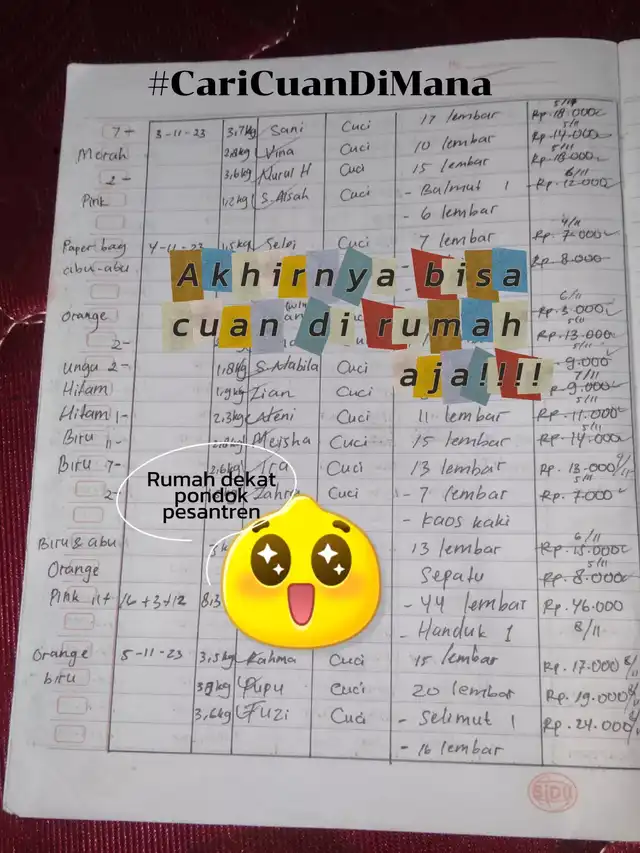 #CariCuanDiMana
17 lembar
7+ 3-11-23 3,7kg Sani Cuci Rp. 18.000
5/11
Merah 2,8kg Vina Cuci 10 lembar Rp. 14.000
5/11
2- 3,6kg Nurul H Cuci 15 lembar Rp. 18.000
6/11
Pink 1,2kg S. Aisah Cuci - Balmut 1 Rp. 12.000
- 6 lembar
4/11
Paper bag 4-11-23 1,5kg Selvi Cuci 7 lembar Rp. 7.000
abu-abu Rp. 8.000
Akhirnya bisa
cuan di rumah
aja!!!!
6/11
Orange Rp. 3.000
5/11
2- Rp. 13.000
5/11
Ungu 2- 1,8kg S. Nabila Cuci 9.000
7/11
Hitam 1,9kg Zian Cuci Rp. 9.000
5/11
Hitam 1- 2,3kg Afeni Cuci 11 lembar Rp. 11.000
5/11
Biru 11- Meisha Cuci 15 lembar Rp. 14.000
Biru 7- 2,6kg Ira Cuci 13 lembar Rp. 13.000
5/11
2- Zahra Cuci - 7 lembar Rp. 7.000
- Kaos kaki
Rumah dekat
pondok
pesantren
6/11
Biru & abu 13 lembar Rp. 15.000
5/11
Orange Sepatu Rp. 8.000
Pink 11+ 16+3+12 8,3 - 44 lembar Rp. 46.000
- Handuk 1 8/11
Orange 5-11-23 3,5kg Rahma Cuci 15 lembar Rp. 17.000
biru Pupu Cuci 20 lembar Rp. 19.000
3,6kg Fuzi Cuci - Selimut 1 Rp. 24.000
- 16 lembar
SIDU